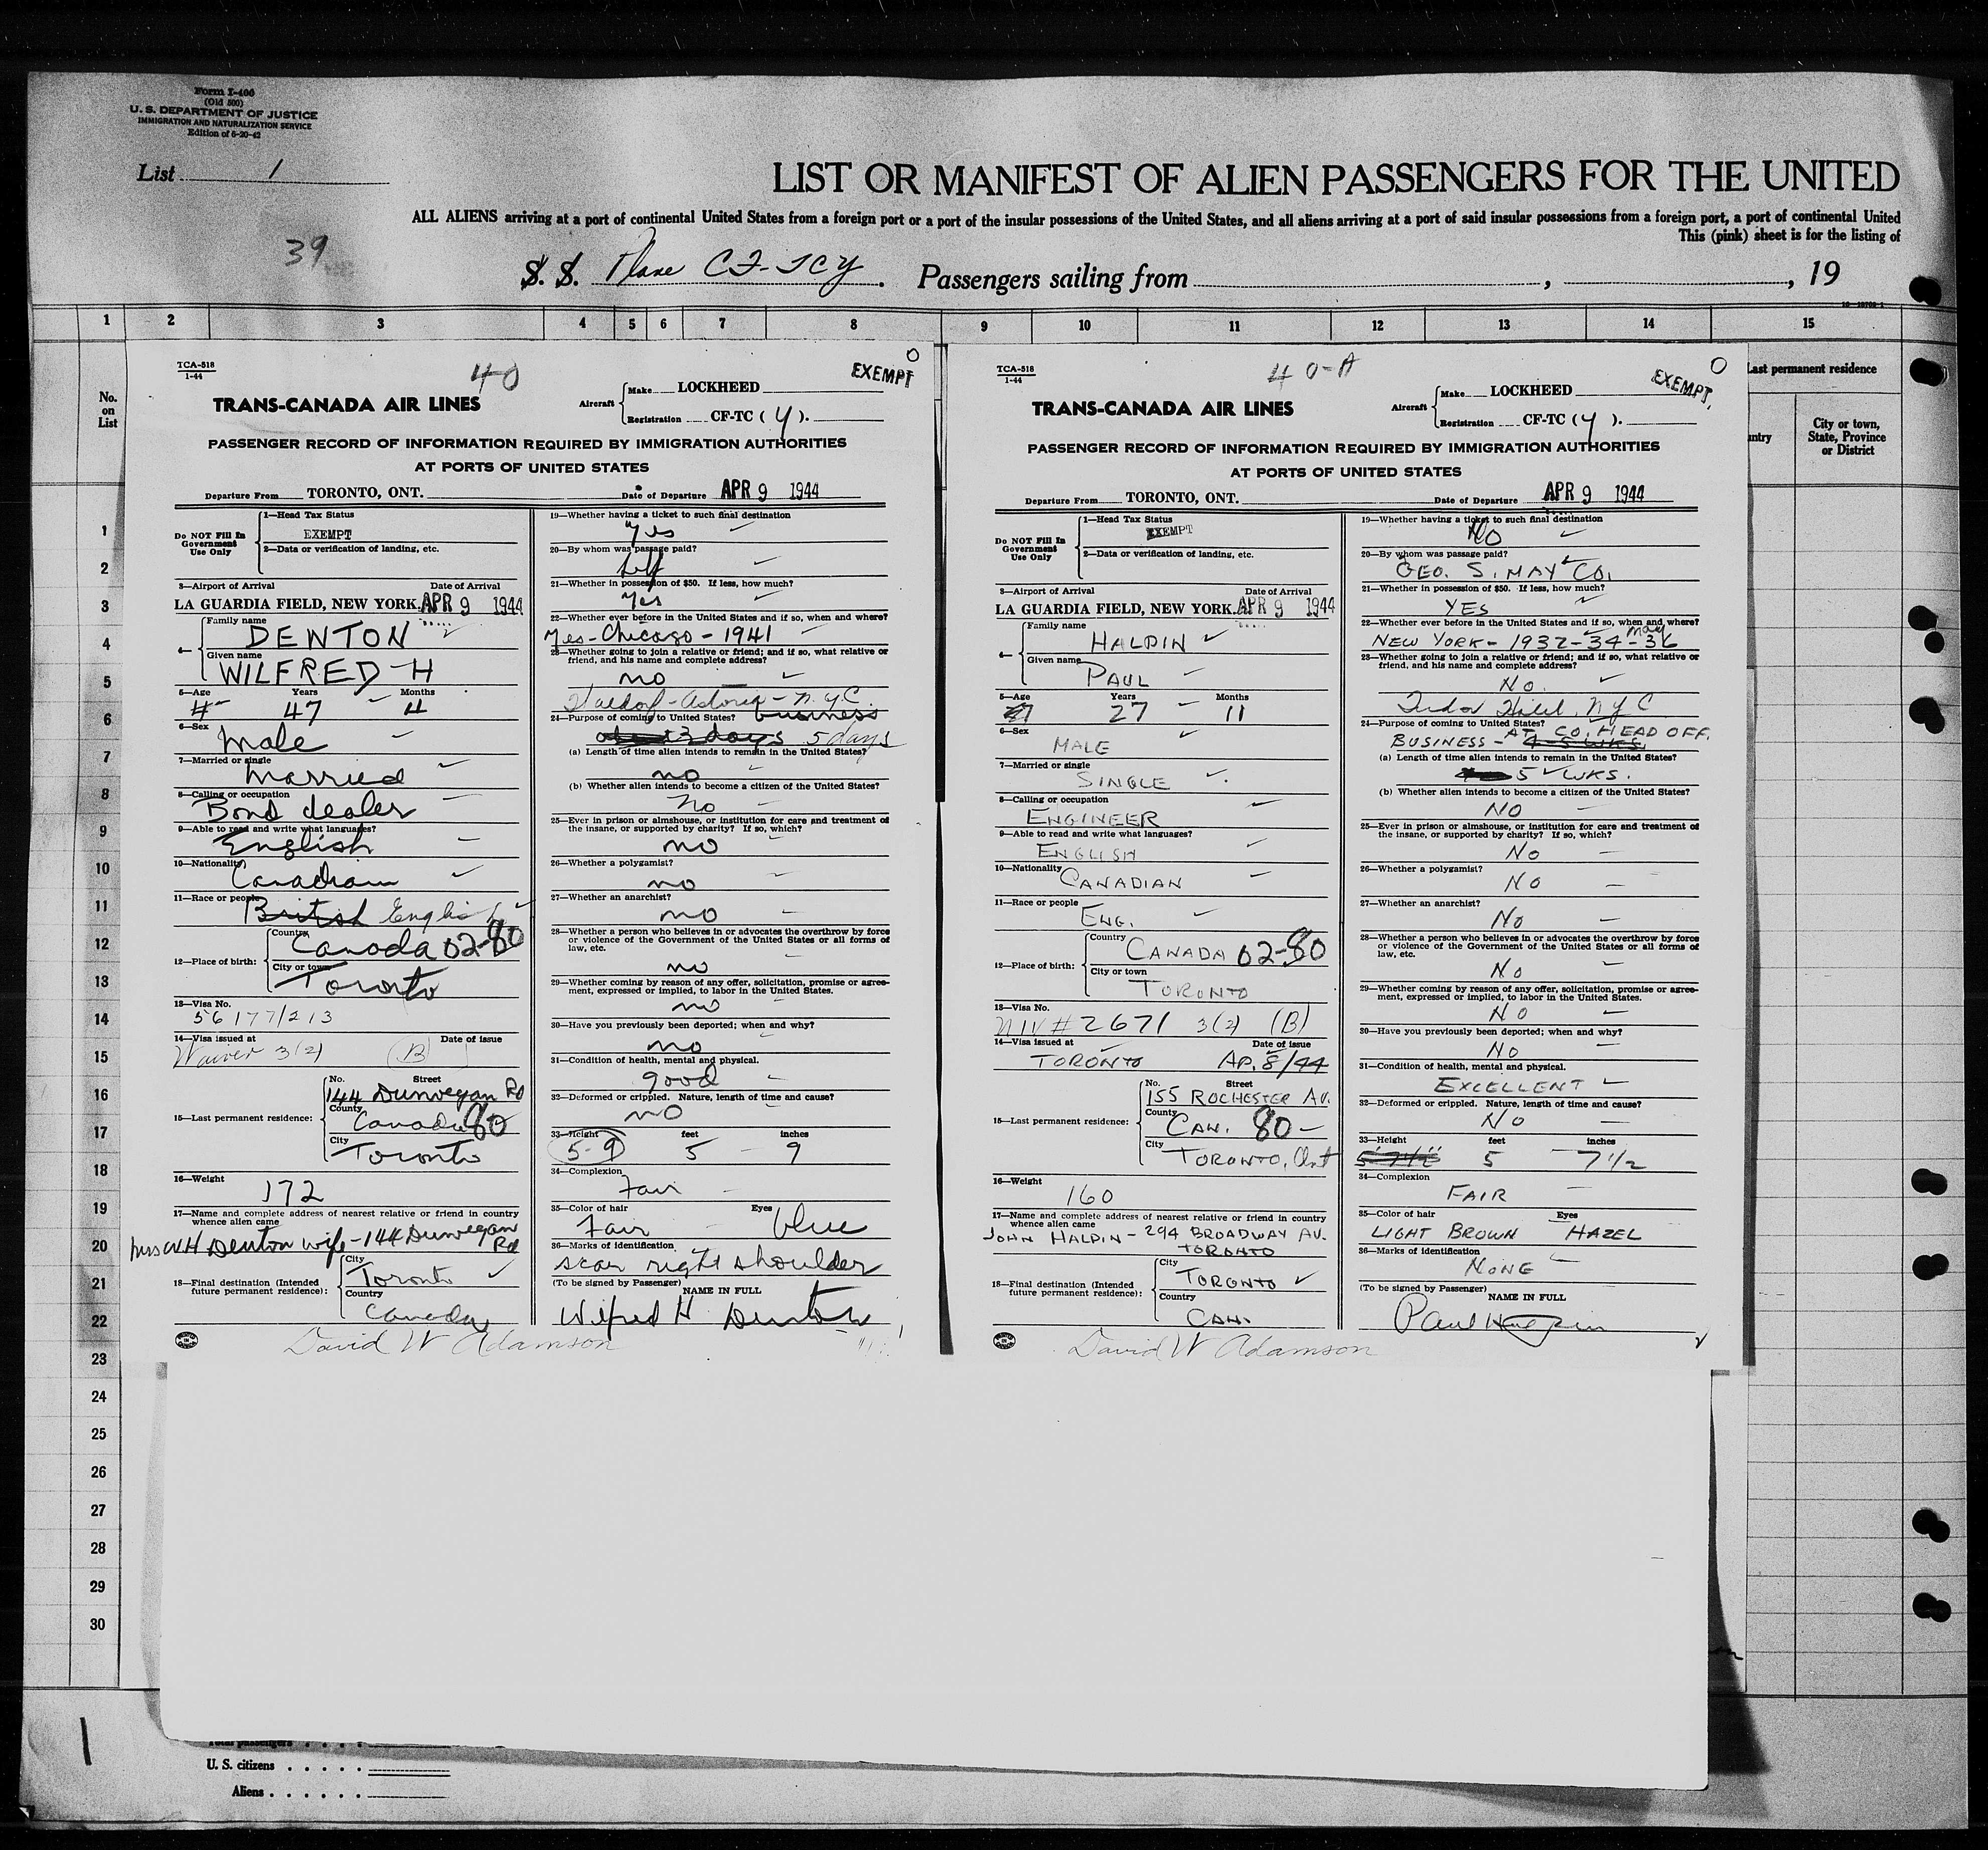 Form I-406
(Old 500)
U. S. DEPARTMENT OF JUSTICE
IMMIGRATION AND NATURALIZATION SERVICE
Edition of 5-20-42
List 1
LIST OR MANIFEST OF ALIEN PASSENGERS FOR THE UNITED
ALL ALIENS arriving at a port of continental United States from a foreign port or a port of the insular possessions of the United States, and all aliens arriving at a port of said insular possessions from a foreign port, a port of continental United
This (pink) sheet is for the listing of
39
S. S. Plane CF-TCY. Passengers sailing from , , 19
1 2 3 4 5 6 7 8 9 10 11 12 13 14 15
No.
on
List
1
2
3
4
5
6
7
8
9
10
11
12
13
14
15
16
17
18
19
20
21
22
23
24
25
26
27
28
29
30
TCA-518
1-44
40
EXEMPT
TRANS-CANADA AIR LINES
Aircraft
Make LOCKHEED
Registration CF-TC ( Y ).
PASSENGER RECORD OF INFORMATION REQUIRED BY IMMIGRATION AUTHORITIES
AT PORTS OF UNITED STATES
Departure From TORONTO, ONT. Date of Departure APR 9 1944
Do NOT Fill In
Government
Use Only
1—Head Tax Status
EXEMPT
2—Data or verification of landing, etc.
3—Airport of Arrival Date of Arrival
LA GUARDIA FIELD, NEW YORK. APR 9 1944
4—
Family name
DENTON
Given name
WILFRED H
5—Age Years Months
47 - 4
6—Sex
Male
7—Married or single
Married
8—Calling or occupation
Bond dealer
9—Able to read and write what languages?
English
10—Nationality
Canadian
11—Race or people
British English
12—Place of birth:
Country
Canada 02-80
City or town
Toronto
13—Visa No.
56177/213
14—Visa issued at Date of issue
Waiver 3(2) (B)
15—Last permanent residence:
No. Street
144 Dunvegan Rd
County
Canada 80
City
Toronto
16—Weight
172
17—Name and complete address of nearest relative or friend in country
whence alien came
Mrs W H Denton wife - 144 Dunvegan Rd
18—Final destination (Intended
future permanent residence):
City
Toronto
Country
Canada
David W Adamson
19—Whether having a ticket to such final destination
Yes
20—By whom was passage paid?
Self
21—Whether in possession of $50. If less, how much?
Yes
22—Whether ever before in the United States and if so, when and where?
Yes - Chicago - 1941
23—Whether going to join a relative or friend; and if so, what relative or
friend, and his name and complete address?
no
Waldorf-Astoria - N.Y.C.
24—Purpose of coming to United States? business
3 days 5 days
(a) Length of time alien intends to remain in the United States?
no
(b) Whether alien intends to become a citizen of the United States?
no
25—Ever in prison or almshouse, or institution for care and treatment of
the insane, or supported by charity? If so, which?
no
26—Whether a polygamist?
no
27—Whether an anarchist?
no
28—Whether a person who believes in or advocates the overthrow by force
or violence of the Government of the United States or all forms of
law, etc.
no
29—Whether coming by reason of any offer, solicitation, promise or agree-
ment, expressed or implied, to labor in the United States.
no
30—Have you previously been deported; when and why?
no
31—Condition of health, mental and physical.
good
32—Deformed or crippled. Nature, length of time and cause?
no
33—Height feet inches
5-9 5 - 9
34—Complexion
Fair
35—Color of hair Eyes
Fair blue
36—Marks of identification
scar right shoulder
(To be signed by Passenger) NAME IN FULL
Wilfred H Denton
TCA-518
1-44
40-A
EXEMPT
TRANS-CANADA AIR LINES
Aircraft
Make LOCKHEED
Registration CF-TC ( Y ).
PASSENGER RECORD OF INFORMATION REQUIRED BY IMMIGRATION AUTHORITIES
AT PORTS OF UNITED STATES
Departure From TORONTO, ONT. Date of Departure APR 9 1944
Do NOT Fill In
Government
Use Only
1—Head Tax Status
EXEMPT
2—Data or verification of landing, etc.
3—Airport of Arrival Date of Arrival
LA GUARDIA FIELD, NEW YORK. APR 9 1944
4—
Family name
HALPIN
Given name
PAUL
5—Age Years Months
27 - 11
6—Sex
MALE
7—Married or single
SINGLE
8—Calling or occupation
ENGINEER
9—Able to read and write what languages?
ENGLISH
10—Nationality
CANADIAN
11—Race or people
ENG.
12—Place of birth:
Country
CANADA 02-80
City or town
TORONTO
13—Visa No.
NIV # 2671 3(2) (B)
14—Visa issued at Date of issue
TORONTO AP. 8/44
15—Last permanent residence:
No. Street
155 ROCHESTER AV.
County
CAN. 80-
City
TORONTO, Ont
16—Weight
160
17—Name and complete address of nearest relative or friend in country
whence alien came
JOHN HALPIN - 294 BROADWAY AV.
TORONTO
18—Final destination (Intended
future permanent residence):
City
TORONTO
Country
CAN.
David W Adamson
19—Whether having a ticket to such final destination
NO
20—By whom was passage paid?
GEO. S. MAY CO.
21—Whether in possession of $50. If less, how much?
YES
22—Whether ever before in the United States and if so, when and where?
NEW YORK - 1932 - 34 - May 36
23—Whether going to join a relative or friend; and if so, what relative or
friend, and his name and complete address?
NO.
Tudor Hotel, NYC
24—Purpose of coming to United States?
BUSINESS - AT CO. HEAD OFF.
4-5 WKS.
(a) Length of time alien intends to remain in the United States?
5 WKS.
(b) Whether alien intends to become a citizen of the United States?
NO
25—Ever in prison or almshouse, or institution for care and treatment of
the insane, or supported by charity? If so, which?
NO
26—Whether a polygamist?
NO
27—Whether an anarchist?
NO
28—Whether a person who believes in or advocates the overthrow by force
or violence of the Government of the United States or all forms of
law, etc.
NO
29—Whether coming by reason of any offer, solicitation, promise or agree-
ment, expressed or implied, to labor in the United States.
NO
30—Have you previously been deported; when and why?
NO
31—Condition of health, mental and physical.
EXCELLENT
32—Deformed or crippled. Nature, length of time and cause?
NO
33—Height feet inches
5' 7 1/2" 5 - 7 1/2
34—Complexion
FAIR
35—Color of hair Eyes
LIGHT BROWN HAZEL
36—Marks of identification
NONE
(To be signed by Passenger) NAME IN FULL
Paul Halpin
Last permanent residence
City or town,
State, Province
or District
Total passengers
U. S. citizens
Aliens